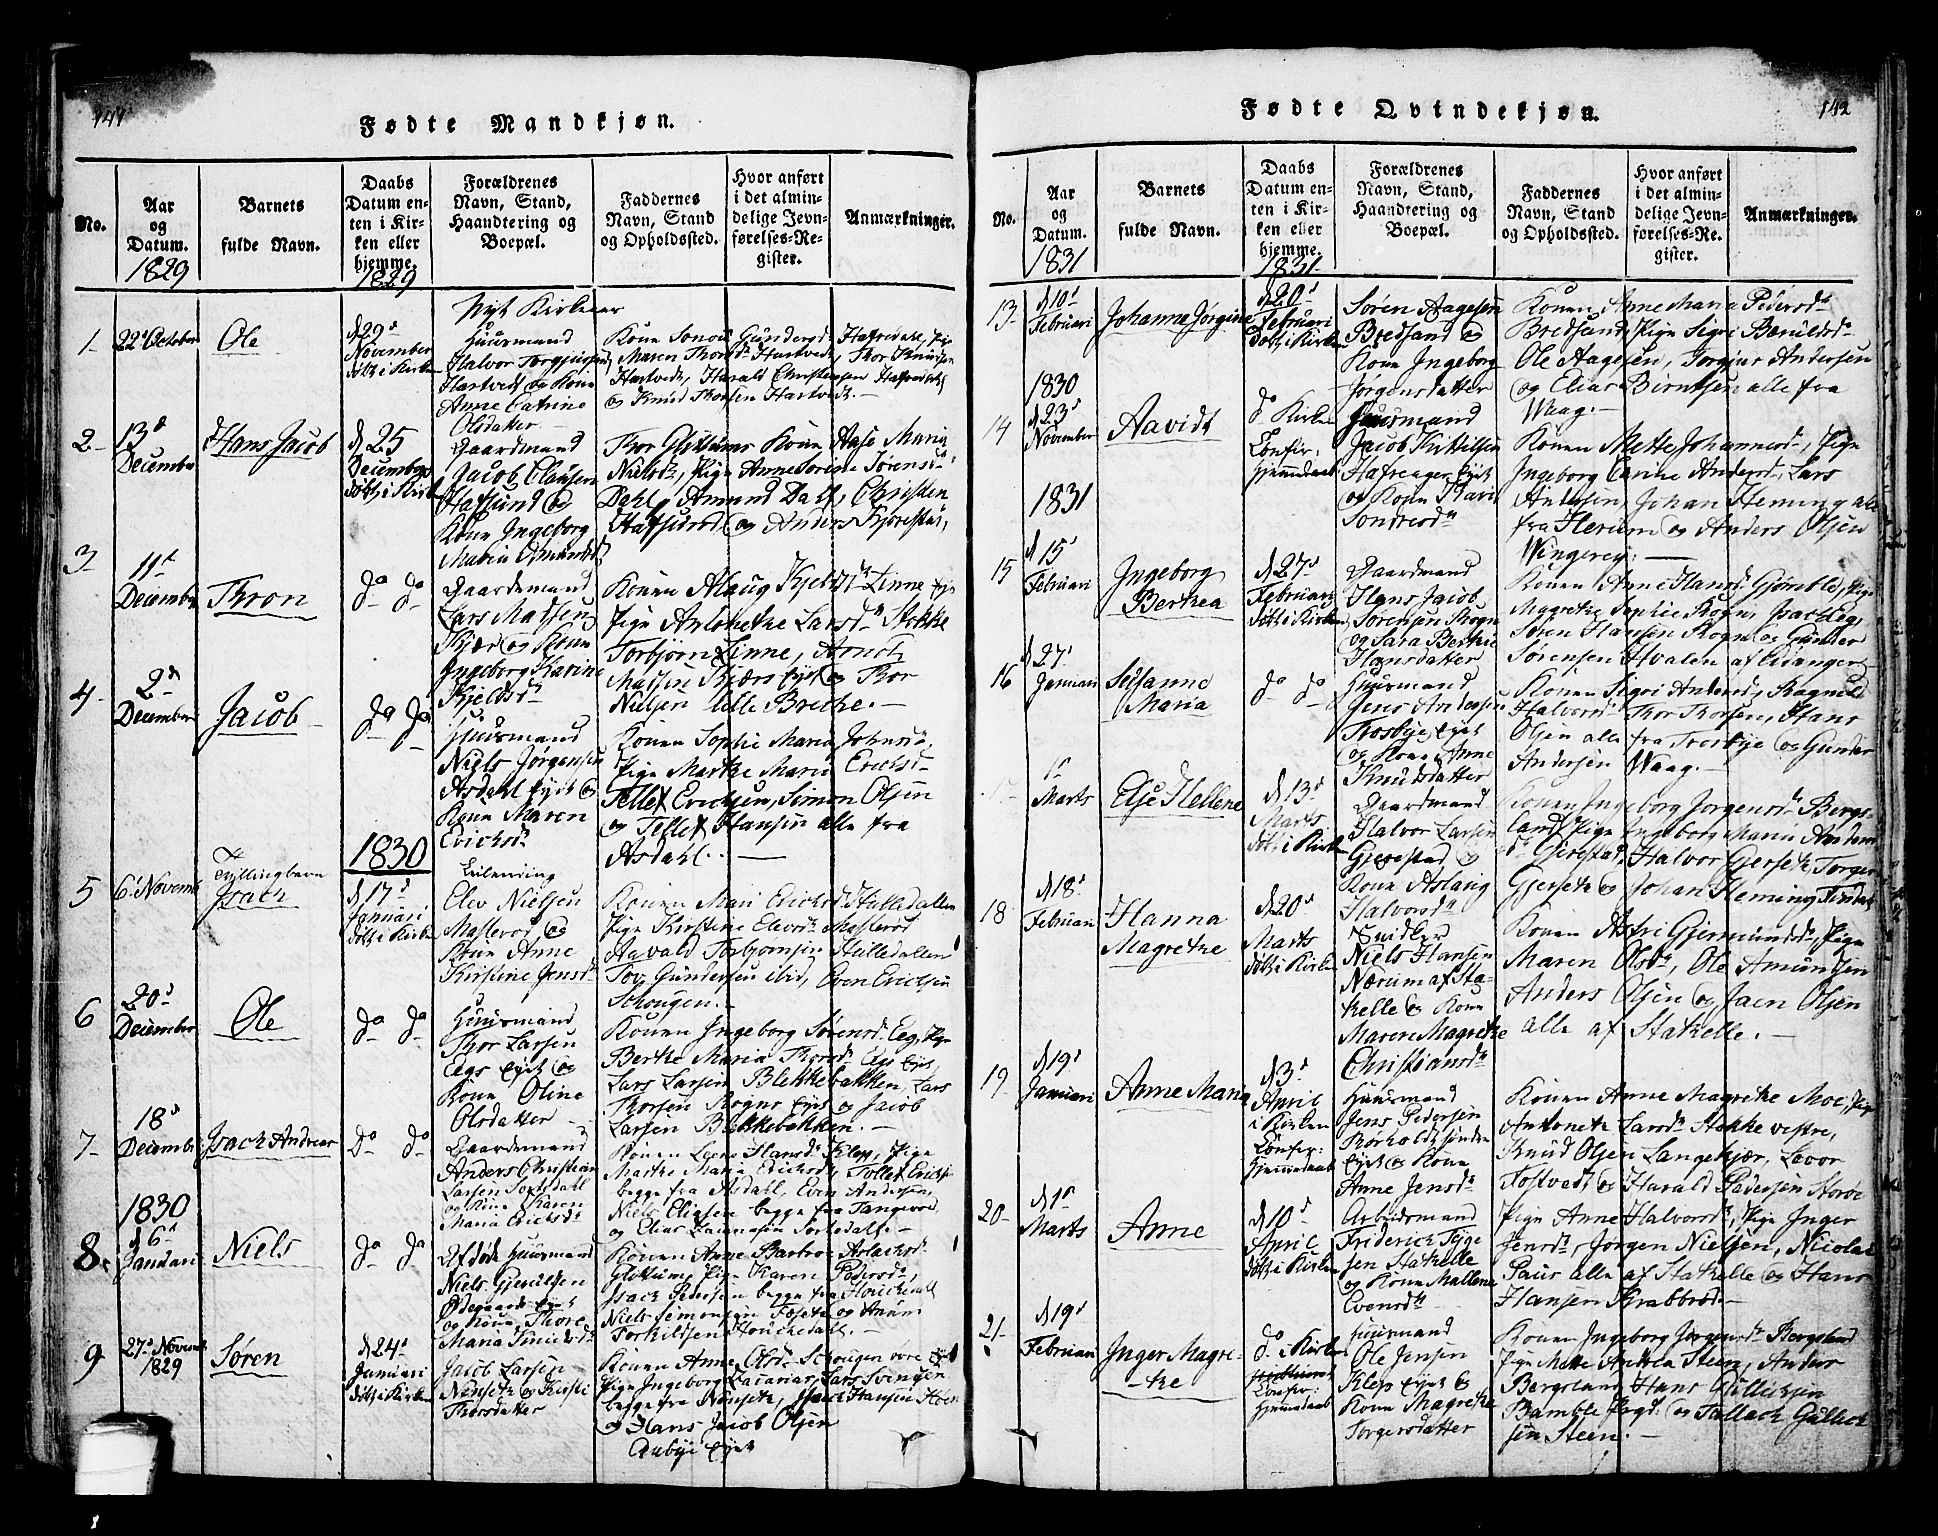 141
Fødte Mandkjøn.
No.
Aar
og
Datum.
1829
Barnets
fulde Navn.
Daabs
Datum en-
ten i Kir-
ken eller
hjemme.
1829
Forældrenes
Navn, Stand,
Haandtering og
Boepæl.
Faddernes
Navn, Stand
og Opholdssted.
Hvor anført
i det almin-
delige Jevn-
førelses-Re-
gister.
Anmærkninger.
Nyt Kirkeaar
1
22d October
Ole
d 29d
November
døbt i Kirken
Huusmand
Halvor Torgjusen
Hartvedt og Kone
Anne Catrine
Olsdatter
Kone Gundersd
Maren Thorsd Hartvedt, Thor Knudsen
Hartvedt, Harald Christensen
og Knud Thorsen Hartvedt.
2
13d
December
Hans Jacob
d 25
December
døbt i Kirken
Gaardmand
Jacob Clausen
Hafsund og
Kone Ingeborg
Maria
Thor Glittums Kone Aase Maria
Nielsd, Pige Anne Sørensd
Dahl, Amund Dahl, Christen
og Anders
3
11d
December
Thron
do do
Gaardmand
Lars Madsen
Kjær og Kone
Ingeborg Karine
Kjeldsd
Konen Aslaug Kjeldsd Linne
Pige Antonette Larsd Stokke
Torbjørn Linne, Arndt
Madsen Kjærs Eyet og Thor
Nielsen lille Brekke.
4
2d
December
Jacob
do do
Huusmand
Niels Jørgensen
Asdahl Eyet og
Kone Maren
Erichsd
Konen Sophie Maria Johnsd,
Pige Marthe Maria Erichsd
Tellef Erichsen, Simon Olsen
og Tellef Hansen alle fra
Asdahl.
1830
5
6 Novemb
Tvillingbarn
Isach
d 17d
Januari
døbt i Kirken
Leilending
Elev Nielsen
Masterød og
Kone Anne
Kirstine Jensd
Konen Mari Erichsd Hulledallen
Pige Kirstine Elevsd Masterød
Aavald Torbjørnsen Hulledallen
Tov Gundersen ibid, Even Erichsen
Schougen.
6
20d
December
Ole
do do
Huusmand
Thor Larsen
Eegs Eyet og
Kone Oline
Olsdatter
Konen Ingeborg Sørensd Eeg, Pige
Berthe Maria Thorsd Eegs Eyet,
Lars Larsen Blekkebakken, Lars
Thorsen Rogns Eyet og Jacob
Larsen Blekkebakken.
7
18d
December
Isach Andreas
do do
Gaardmand
Anders Christian
Larsen Tortedahl
og Kone Karen
Maria Erichsd
Konen Lene Hansd Klep, Pige
Marthe Maria Erichsd, Tollef Erichs
begge fra Asdahl, Even Andersen,
Niels Eliasen begge fra Tangevold
og Elias Tortedahl.
1830
8
d 6d
Januari
Niels
do do
Afdøde Huusmand
Niels
Ødegaards Eyet
og Kone Thore
Maria Knudsd
Konen Anne Barbroe Aslachsd
Glittum, Pige Karen Pedersd,
Isach Pedersen begge fra Houchedahl
Niels Simonsen Fosete og Amun
Torkildsen Houchedahl.
9
27d Novemb
1829
Søren
d 24d
Januari
døbt i Kirken
Jacob Larsen
Nensete og Kirsti
Thorsdatter
Konen Anne Olsd Schougen
Pige Ingeborg Zacarias, Lars Svensen
begge fra Nensete, Isach Hansen
og Hans Jacob Olsen
Aabye Eyet
142
Fødte Qvindekjøn.
No.
Aar
og
Datum.
1831
Barnets
fulde Navn.
Daabs
Datum en-
ten i Kir-
ken eller
hjemme.
1831
Forældrenes
Navn, Stand,
Haandtering og
Boepæl.
Faddernes
Navn, Stand
og Opholdssted.
Hvor anført
i det almin-
delige Jevn-
førelses-Re-
gister.
Anmærkninger.
13
d 10d
Februari
Johanne Jørgine
d 20d
Februari
døbt i Kirken
Søren Aagesen
Bredsand og
Kone Ingeborg
Jørgensdatter
Konen Anne Maria Pedersd
Bredsand, Pige Sigri Danielsd
Ole Aagesen, Torgjus Andersen
og Elias Berntsen alle fra
Waag.
1830
14
d 23d
November
Aavidt
do Kirken
Confir:
Hjemmedaab
Huusmand
Jacob Kittilsen
Hafreager Eyet
og Kone
Sondresd
Konen Mette Johannesd, Pige
Ingeborg Carine Andersd, Lars
Andersen, Johan Heming alle
fra Herum og Anders Olsen
Wingerey.
1831
15
d 15d
Februari
Ingeborg
Berthea
d 27d
Februari
døbt i Kirken
Gaardmand
Hans Jacob
Sørensen Rogn
og Sara Berthe
Hansdatter
Konen Anne Hansd Gjømble, Pige
Magrethe Sophie Rogn,
Søren Hansen Rogn og Gunder
Sørensen Hvalen af Eidanger
16
d 27d
Januari
Susanne
Maria
do do
Huusmand
Jens Andersen
Trosbye Eyet
og Kone Anne
Knudsdatter
Konen Sigri Andersd, Ragnild
Halvorsd, Thor Thorsen, Hans
Olsen alle fra Trosbye og Gunder
Andersen Waag.
17
1d
Marts
Else Hellene
d 13d
Marts
døbt i Kirken
Gaardmand
Halvor Larsen
Gjerestad og
Kone Aslaug
Halvorsd
Konen Ingeborg Jørgensd Bergs-
land, Pige Ingeborg Maria Anders
d Gjerestad, Halvor Gjersete, Torger
Gjersete og Johan Heming
18
d 18d
Februari
Hanna
Magrethe
d 20d
Marts
døbt i Kirken
Snidker
Niels Hansen
Nærum af Sta-
thelle og Kone
Maren Magrethe
Christiansd
Konen Astri Gjermundsd, Pige
Maren Olsd, Ole Amundsen
Anders Olsen og Jaen Olsen
alle af Stathelle.
19
d 19d
Januari
Anne Maria
d 3d
April
i Kirken
Confir:
Hjemmedaab
Huusmand
Jens Pedersen
Rørholdt
Eyet og Kone
Anne Jensd
Konen Anne Magrethe Moe, Pige
Antonette Larsd Stokke vestre,
Knud Olsen Langekjær, Levor
Tostvedt og Harald Pedersen Storøe
20
d 1d
Marts
Anne
d 10d
April
døbt i Kirken
Arbeidsmand
Friderich Teje
sen Stathelle
og Kone Mallene
Evensd
Pige Anne Halvorsd, Pige Inger
Jensd, Jørgen Nielsen, Nicolai
Paus alle af Stathelle og Hans
Hansen Krabberød.
21
d 19d
Februari
Inger Magre-
the
do i Kirken
Confir:
Hjemmedaab
Huusmand
Ole Jensen
Klep Eyet og
Kone Magrethe
Torgersdatter
Konen Ingeborg Jørgensd Bergsland
Pige Mette Andrea Steen, Anders
Bergsland, Hans Gullichsen
Bamble Pgd: og Tallach Gullich
sen Steen.